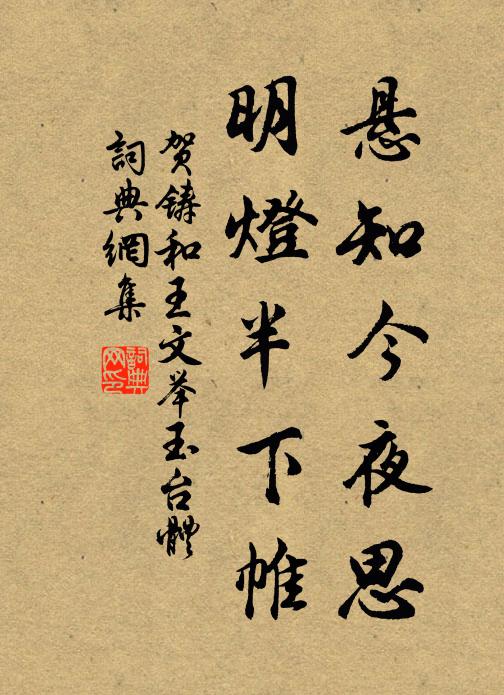 悬知今夜思
明燈半下帷
贺铸和王文举玉台體
詞典網集
詞典网印